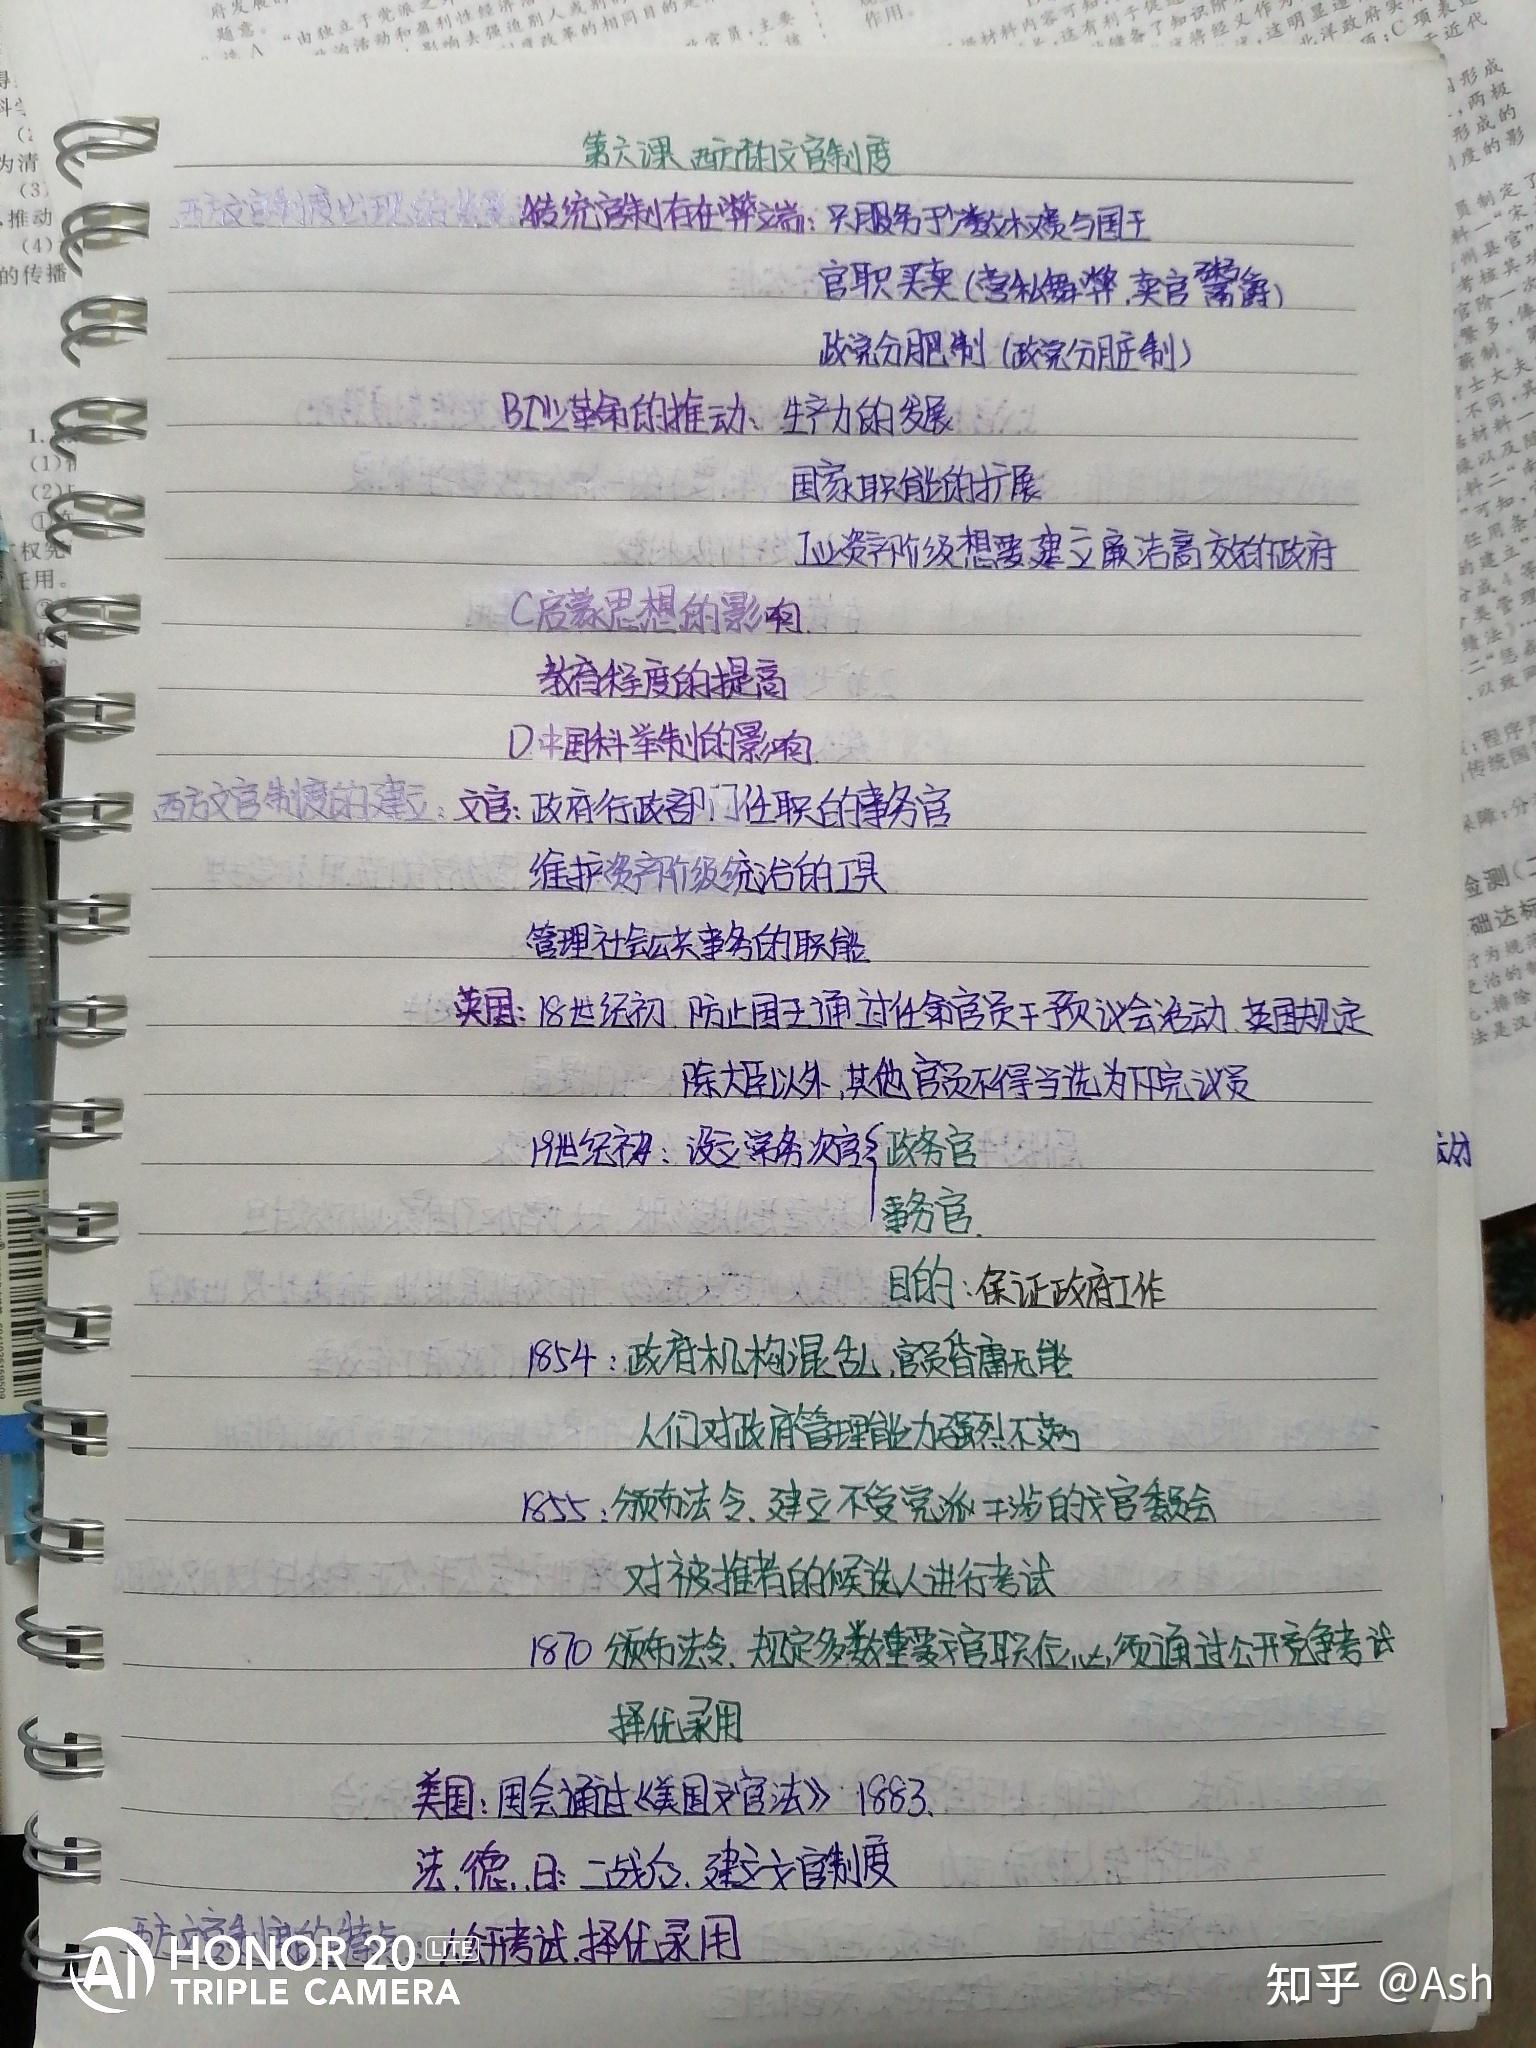 第六课 西方的文官制度
西方文官制度出现的背景 A传统官制存在弊端：只服务于少数权贵与国王
官职买卖(营私舞弊,卖官鬻爵)
政党分肥制(政党分脏制)
B工业革命的推动、生产力的发展
国家职能的扩展
工业资产阶级想要建立廉洁高效的政府
C启蒙思想的影响.
教育程度的提高
D.中国科举制的影响.
西方文官制度的建立：文官：政府行政部门任职的事务官
维护资产阶级统治的工具
管理社会公共事务的职能
英国：18世纪初.防止国王通过任命官员干预议会活动.英国规定
除大臣以外,其他官员不得当选为下院议员
19世纪初：设立常务次官{政务官
事务官.
目的：保证政府工作
1854：政府机构混乱,官员昏庸无能
人们对政府管理能力强烈不满
1855：颁布法令、建立不受党派干涉的文官委员会
对被推者的候选人进行考试
1870 颁布法令、规定多数重要文官职位,必须通过公开竞争考试
择优录用
美国：国会通过《美国文官法》1883.
法.德.日：二战后.建立文官制度
西方文官制度的特点：公开考试.择优录用
HONOR 20 LITE
AI TRIPLE CAMERA
知乎 @Ash